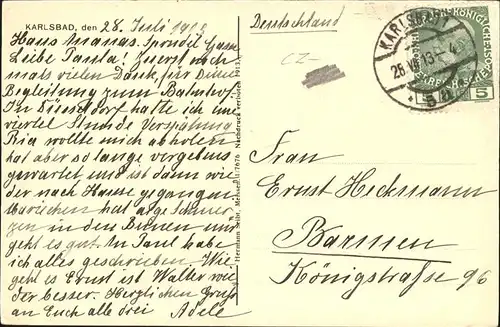 KARLSBAD, den 28. Juli 19
Haus
Liebe Tanta! Zuerst noch
mals vielen Dank für Deine
Begleitung zum Bahnhof.
In Düsseldorf hatte ich eine
viertel Stunde Verspätung
Ria wollte mich abholen
hat aber so lange vergebens
gewartet und ist dann wie
der nach Hause gegangen
Mariechen hat arge Schmer
zen in den Beinen uns
geht es gut. An Paul habe
ich alles geschrieben. Wie
geht es Ernst ist Walter wie
der besser. Herzlichen Gruß
an Euch alle drei Adele
Hermann Seibt, Meissen
Nachdruck verboten
Deutschland
CZ-
KARLSBAD
5
Frau
Ernst Heckmann
Barmen
Königstraße 96